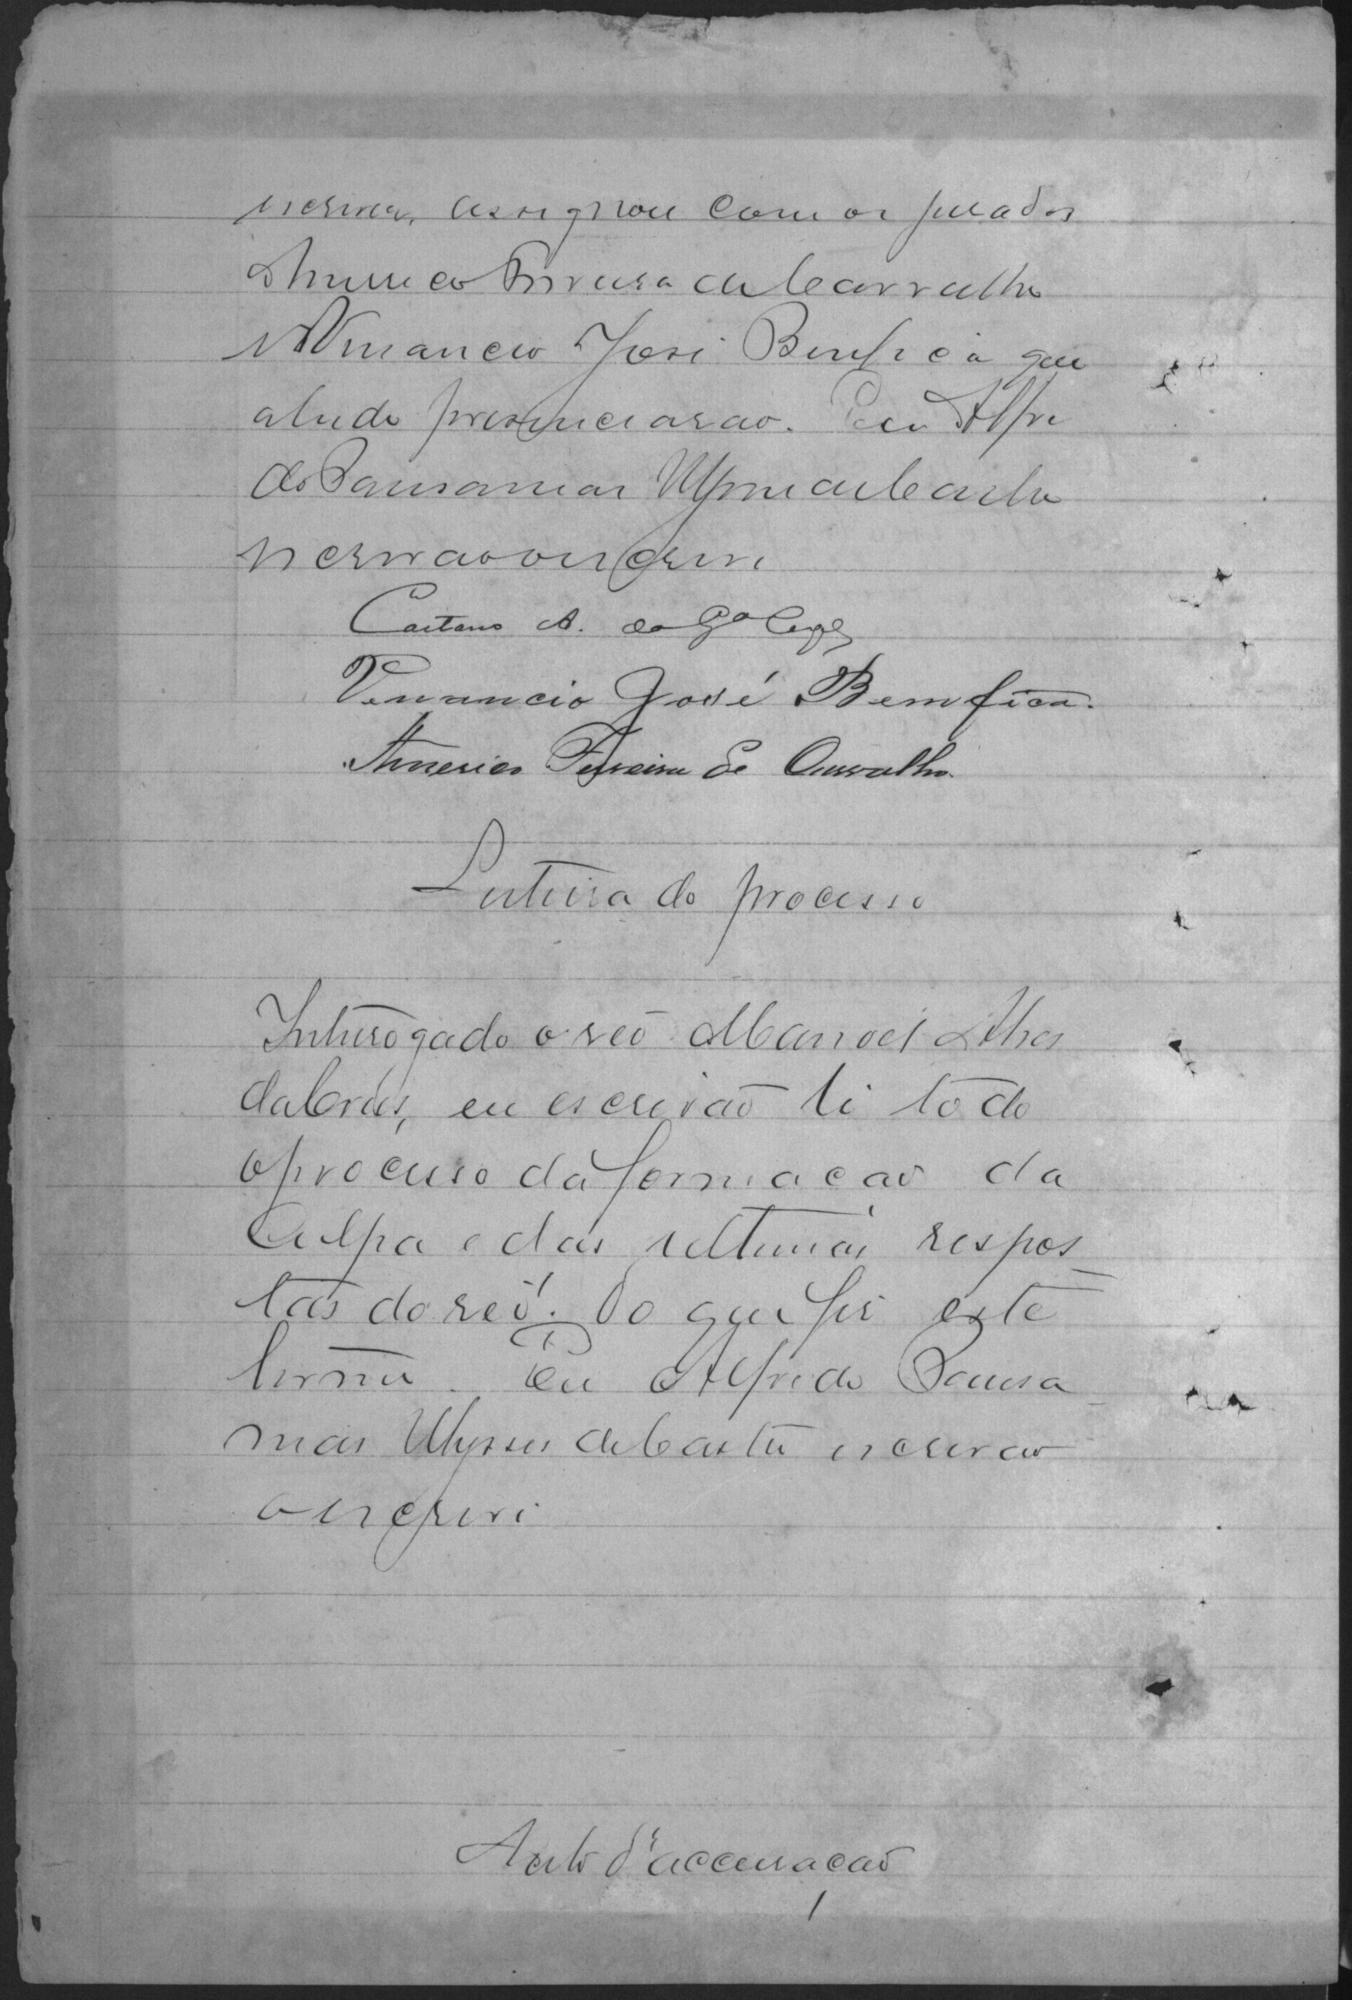 escrever, assignou com os jurados
Americo Ferreira de Carvalho
e Venancio José Bemfica que
a tudo presenciarao. Eu Alfre
do Pausanias Ulysses de Castro
escrivao o escrevi
Caetano A. da
Venancio José Bemfica.
Americo Ferreira de Carvalho.
Leitura do processo
Interrogado o reo Manoel Alves
da Cruz, eu escrivão li todo
o processo da formacao da
culpa e das ultimas respos
tas do reo. Do que fis este
termo. Eu Alfredo Pausa
nias Ulysses de Castro escrivao
o escrevi
Acto d'accusacao